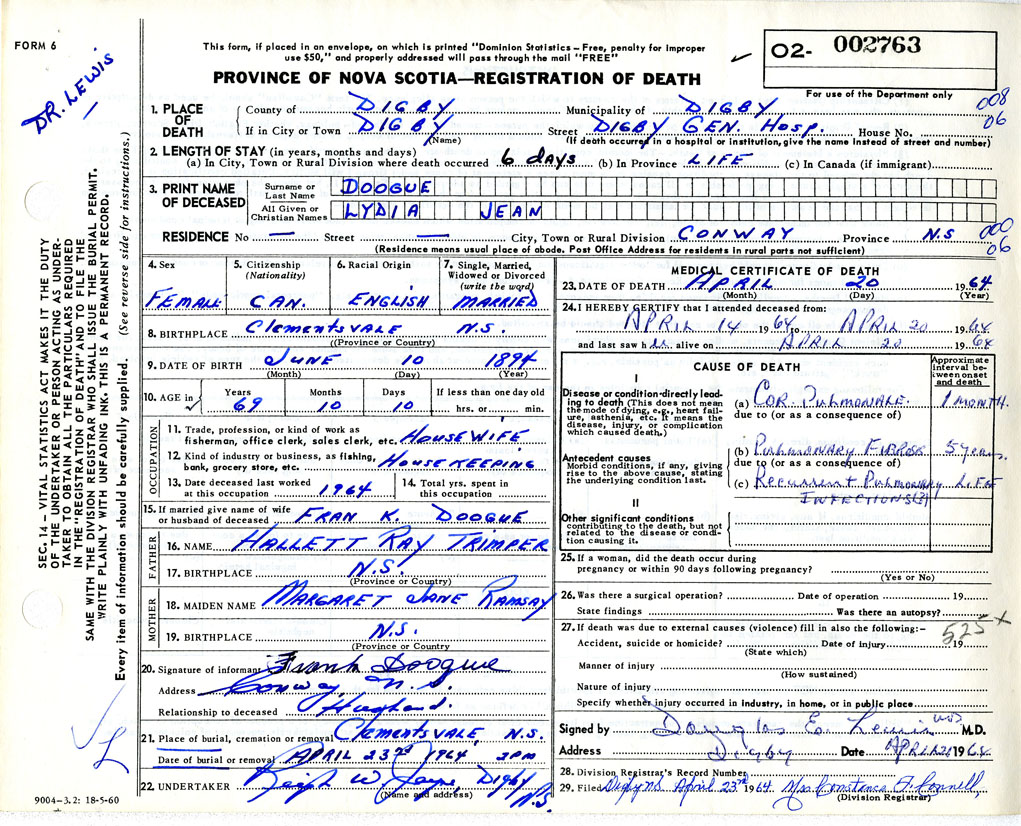 FORM 6
DR. LEWIS
This form, if placed in an envelope, on which is printed "Dominion Statistics – Free, penalty for improper
use $50," and properly addressed will pass through the mail "FREE"
PROVINCE OF NOVA SCOTIA—REGISTRATION OF DEATH
02- 002763
For use of the Department only
008
06
1. PLACE OF DEATH
County of DIGBY Municipality of DIGBY
If in City or Town DIGBY Street DIGBY GEN. HOSP. House No.
(Name) (If death occurred in a hospital or institution, give the name instead of street and number)
2. LENGTH OF STAY (in years, months and days)
(a) In City, Town or Rural Division where death occurred 6 days (b) In Province LIFE (c) In Canada (if immigrant)
3. PRINT NAME OF DECEASED
Surname or Last Name DOOGUE
All Given or Christian Names LYDIA JEAN
RESIDENCE No — Street — City, Town or Rural Division CONWAY Province N.S
000
06
(Residence means usual place of abode. Post Office Address for residents in rural parts not sufficient)
4. Sex FEMALE
5. Citizenship (Nationality) CAN.
6. Racial Origin ENGLISH
7. Single, Married, Widowed or Divorced (write the word) MARRIED
8. BIRTHPLACE CLEMENTSVALE N.S.
(Province or Country)
9. DATE OF BIRTH JUNE 10 1894
(Month) (Day) (Year)
10. AGE in Years 69 Months 10 Days 10 If less than one day old hrs. or min.
OCCUPATION
11. Trade, profession, or kind of work as
fisherman, office clerk, sales clerk, etc. HOUSEWIFE
12. Kind of industry or business, as fishing,
bank, grocery store, etc. HOUSEKEEPING
13. Date deceased last worked
at this occupation 1964
14. Total yrs. spent in
this occupation
15. If married give name of wife
or husband of deceased FRAN K. DOOGUE
FATHER
16. NAME HALLETT RAY TRIMPER
17. BIRTHPLACE N.S.
(Province or Country)
MOTHER
18. MAIDEN NAME MARGARET JANE RAMSAY
19. BIRTHPLACE N.S.
(Province or Country)
20. Signature of informant Frank Doogue
Address Conway, N.S.
Relationship to deceased Husband.
21. Place of burial, cremation or removal Clementsvale, N.S.
Date of burial or removal APRIL 23rd 1964 2PM
22. UNDERTAKER W. Digby N.S.
(Name and address)
9004-3.2: 18-5-60
MEDICAL CERTIFICATE OF DEATH
23. DATE OF DEATH APRIL 20 1964
(Month) (Day) (Year)
24. I HEREBY CERTIFY that I attended deceased from:
APRIL 14 1964 to APRIL 20 1964
and last saw her alive on APRIL 20 1964
CAUSE OF DEATH
Approximate interval between onset and death
I
Disease or condition directly leading to death (This does not mean the mode of dying, e.g., heart failure, asthenia, etc. It means the disease, injury, or complication which caused death.)
(a) COR PULMONALE 1 MONTH.
due to (or as a consequence of)
Antecedent causes
Morbid conditions, if any, giving rise to the above cause, stating the underlying condition last.
(b) PULMONARY FIBROSIS 5 years.
due to (or as a consequence of)
(c) RECURRENT PULMONARY INFECTIONS LIFE
II
Other significant conditions
contributing to the death, but not related to the disease or condition causing it.
25. If a woman, did the death occur during
pregnancy or within 90 days following pregnancy?
(Yes or No)
26. Was there a surgical operation? Date of operation 19
State findings Was there an autopsy?
525 x
27. If death was due to external causes (violence) fill in also the following:–
Accident, suicide or homicide? Date of injury 19
(State which)
Manner of injury
(How sustained)
Nature of injury
Specify whether injury occurred in industry, in home, or in public place
Signed by Douglas E. Lewis MD M.D.
Address Digby Date APRIL 21 1964
28. Division Registrar's Record Number
29. Filed Digby NS April 23rd 1964 Mrs Constance F. Connell,
(Division Registrar)
SEC. 14—VITAL STATISTICS ACT MAKES IT THE DUTY
OF THE UNDERTAKER OR PERSON ACTING AS UNDER-
TAKER TO OBTAIN ALL THE PARTICULARS REQUIRED
IN THE "REGISTRATION OF DEATH" AND TO FILE THE
SAME WITH THE DIVISION REGISTRAR WHO SHALL ISSUE THE BURIAL PERMIT.
WRITE PLAINLY WITH UNFADING INK. THIS IS A PERMANENT RECORD.
Every item of information should be carefully supplied. (See reverse side for instructions.)